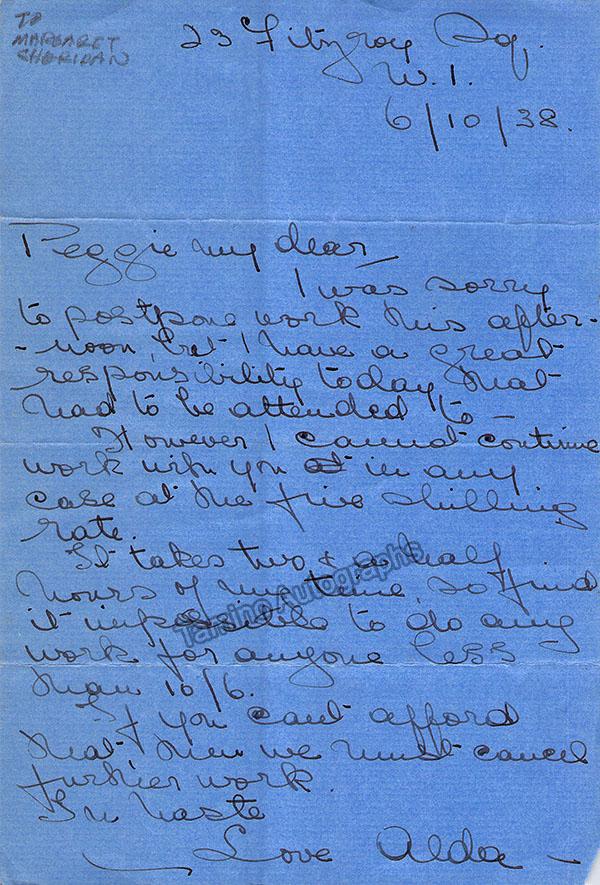 TO
MARGARET
SHERIDAN
23 Fitzroy Sq.
W.1.
6/10/38.
Peggie my dear
I was sorry
to postpone work this after-
-noon, but I have a great
responsibility today that
had to be attended to –
However I cannot continue
work with you in any
case at the five shilling
rate.
It takes two & a half
hours of my time, so find
it impossible to do any
work for anyone less
than 10/6.
If you cant afford
that, then we must cancel
further work.
In haste
Love Alda –
Tamino Autographs